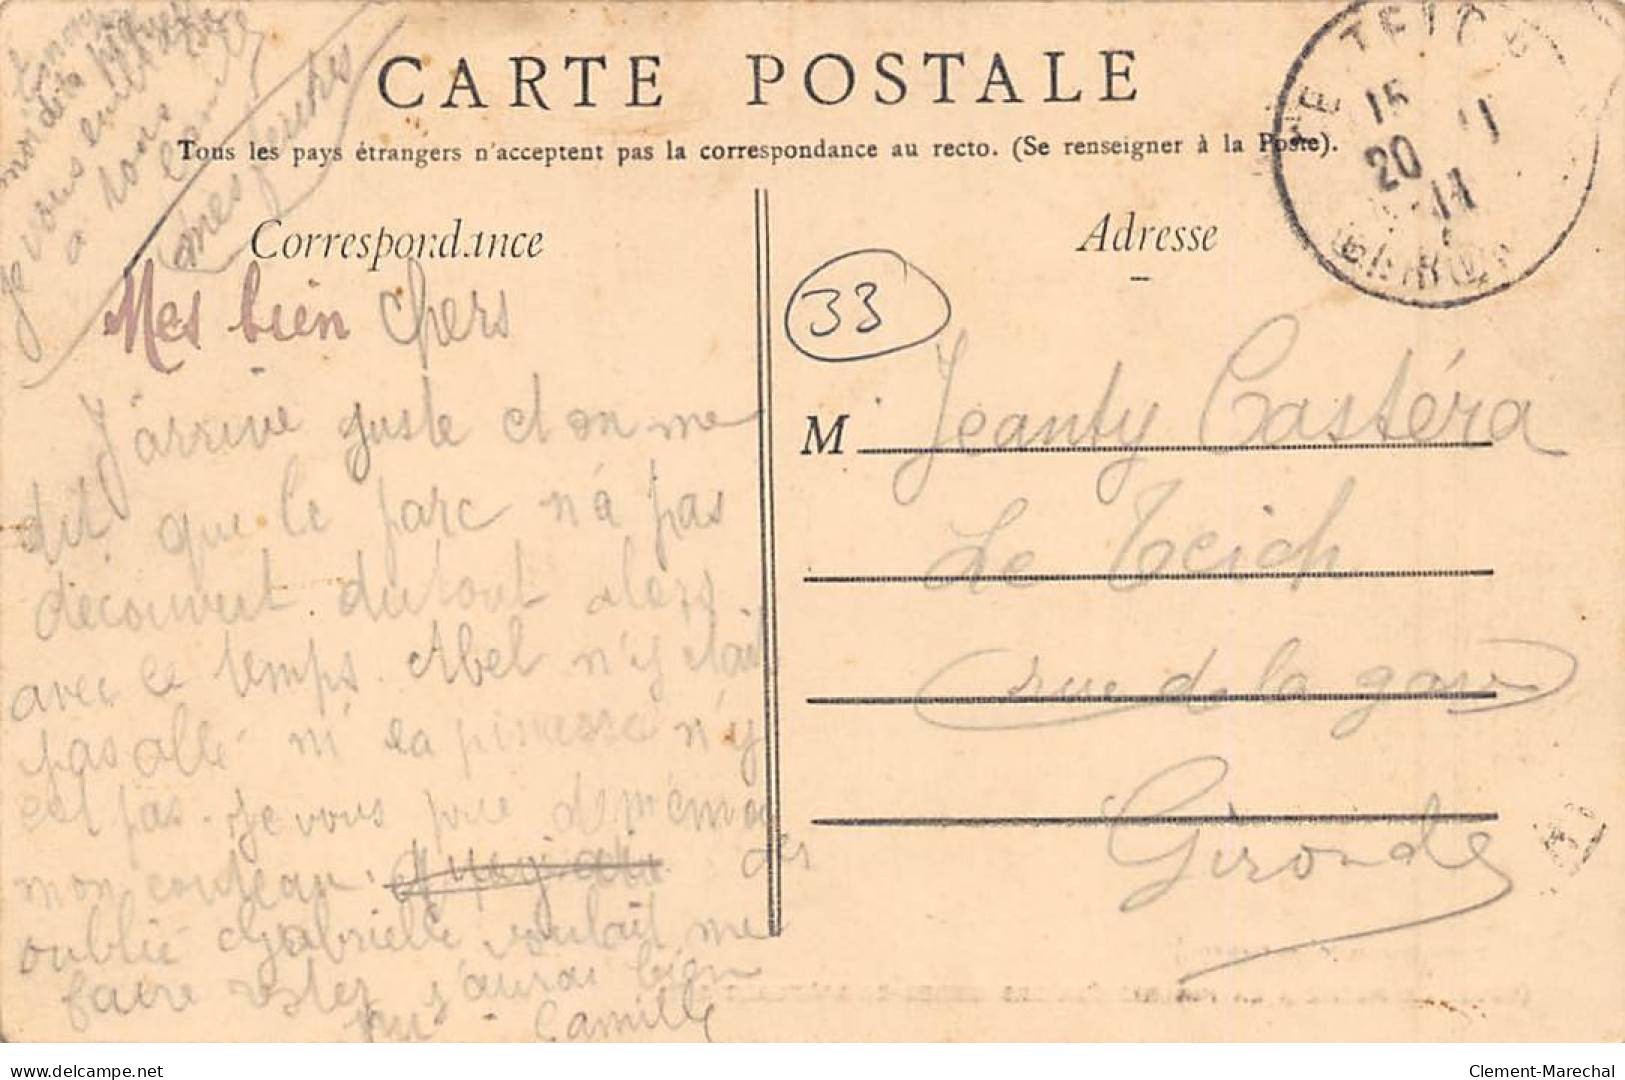 CARTE POSTALE
Tous les pays étrangers n'acceptent pas la correspondance au recto. (Se renseigner à la Poste).
Correspondance
Mes bien Chers
J'arrive juste et on me
dit que le parc n'a pas
découvert du tout alors
avec ce temps. Abel n'y était
pas allé ni la pinasse n'y
est pas. Je vous prie de m'emo
mon couteau. des
oublié Gabrielle voulait me
faire rester j'aurai bien
pu - Camille
je vous embrasse
à tous
Camille
mes
Adresse
33
M Jeanty Castéra
Le Teich
rue de la gare
Gironde
LE TEICH
15
20 - 11
11
GIRONDE
Clement-Marechal